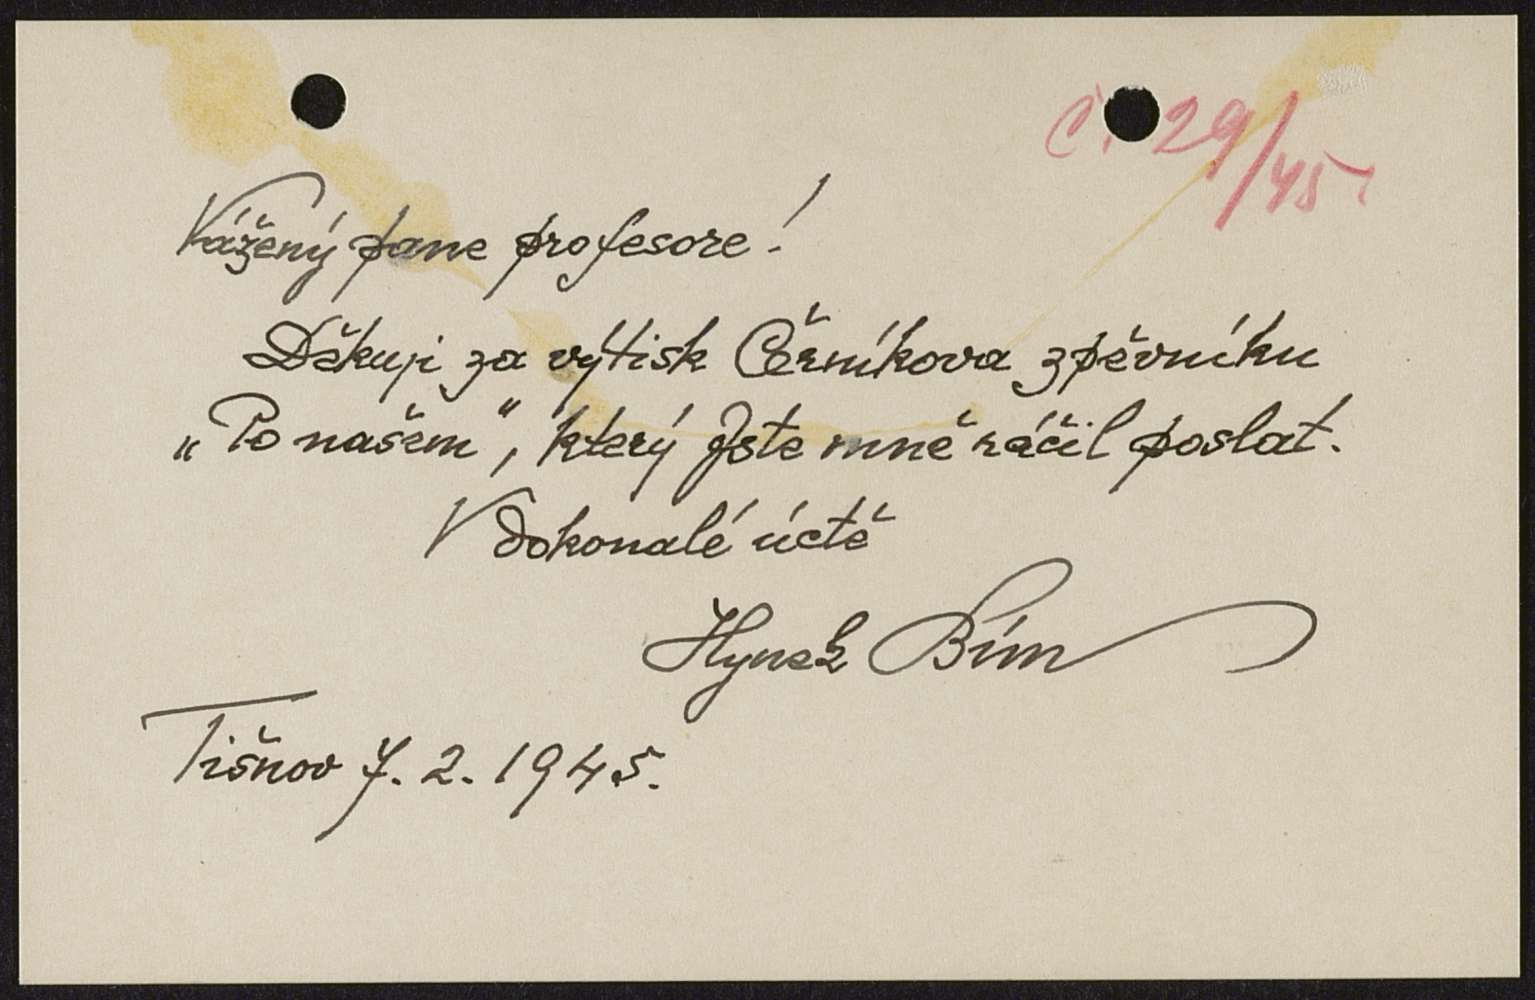 Č. 29/45
Vážený pane profesore!
Děkuji za výtisk Černíkova zpěvníku
„Po našem“, který Jste mně ráčil poslat.
V dokonalé úctě
Hynek Bím
Tišnov 7. 2. 1945.